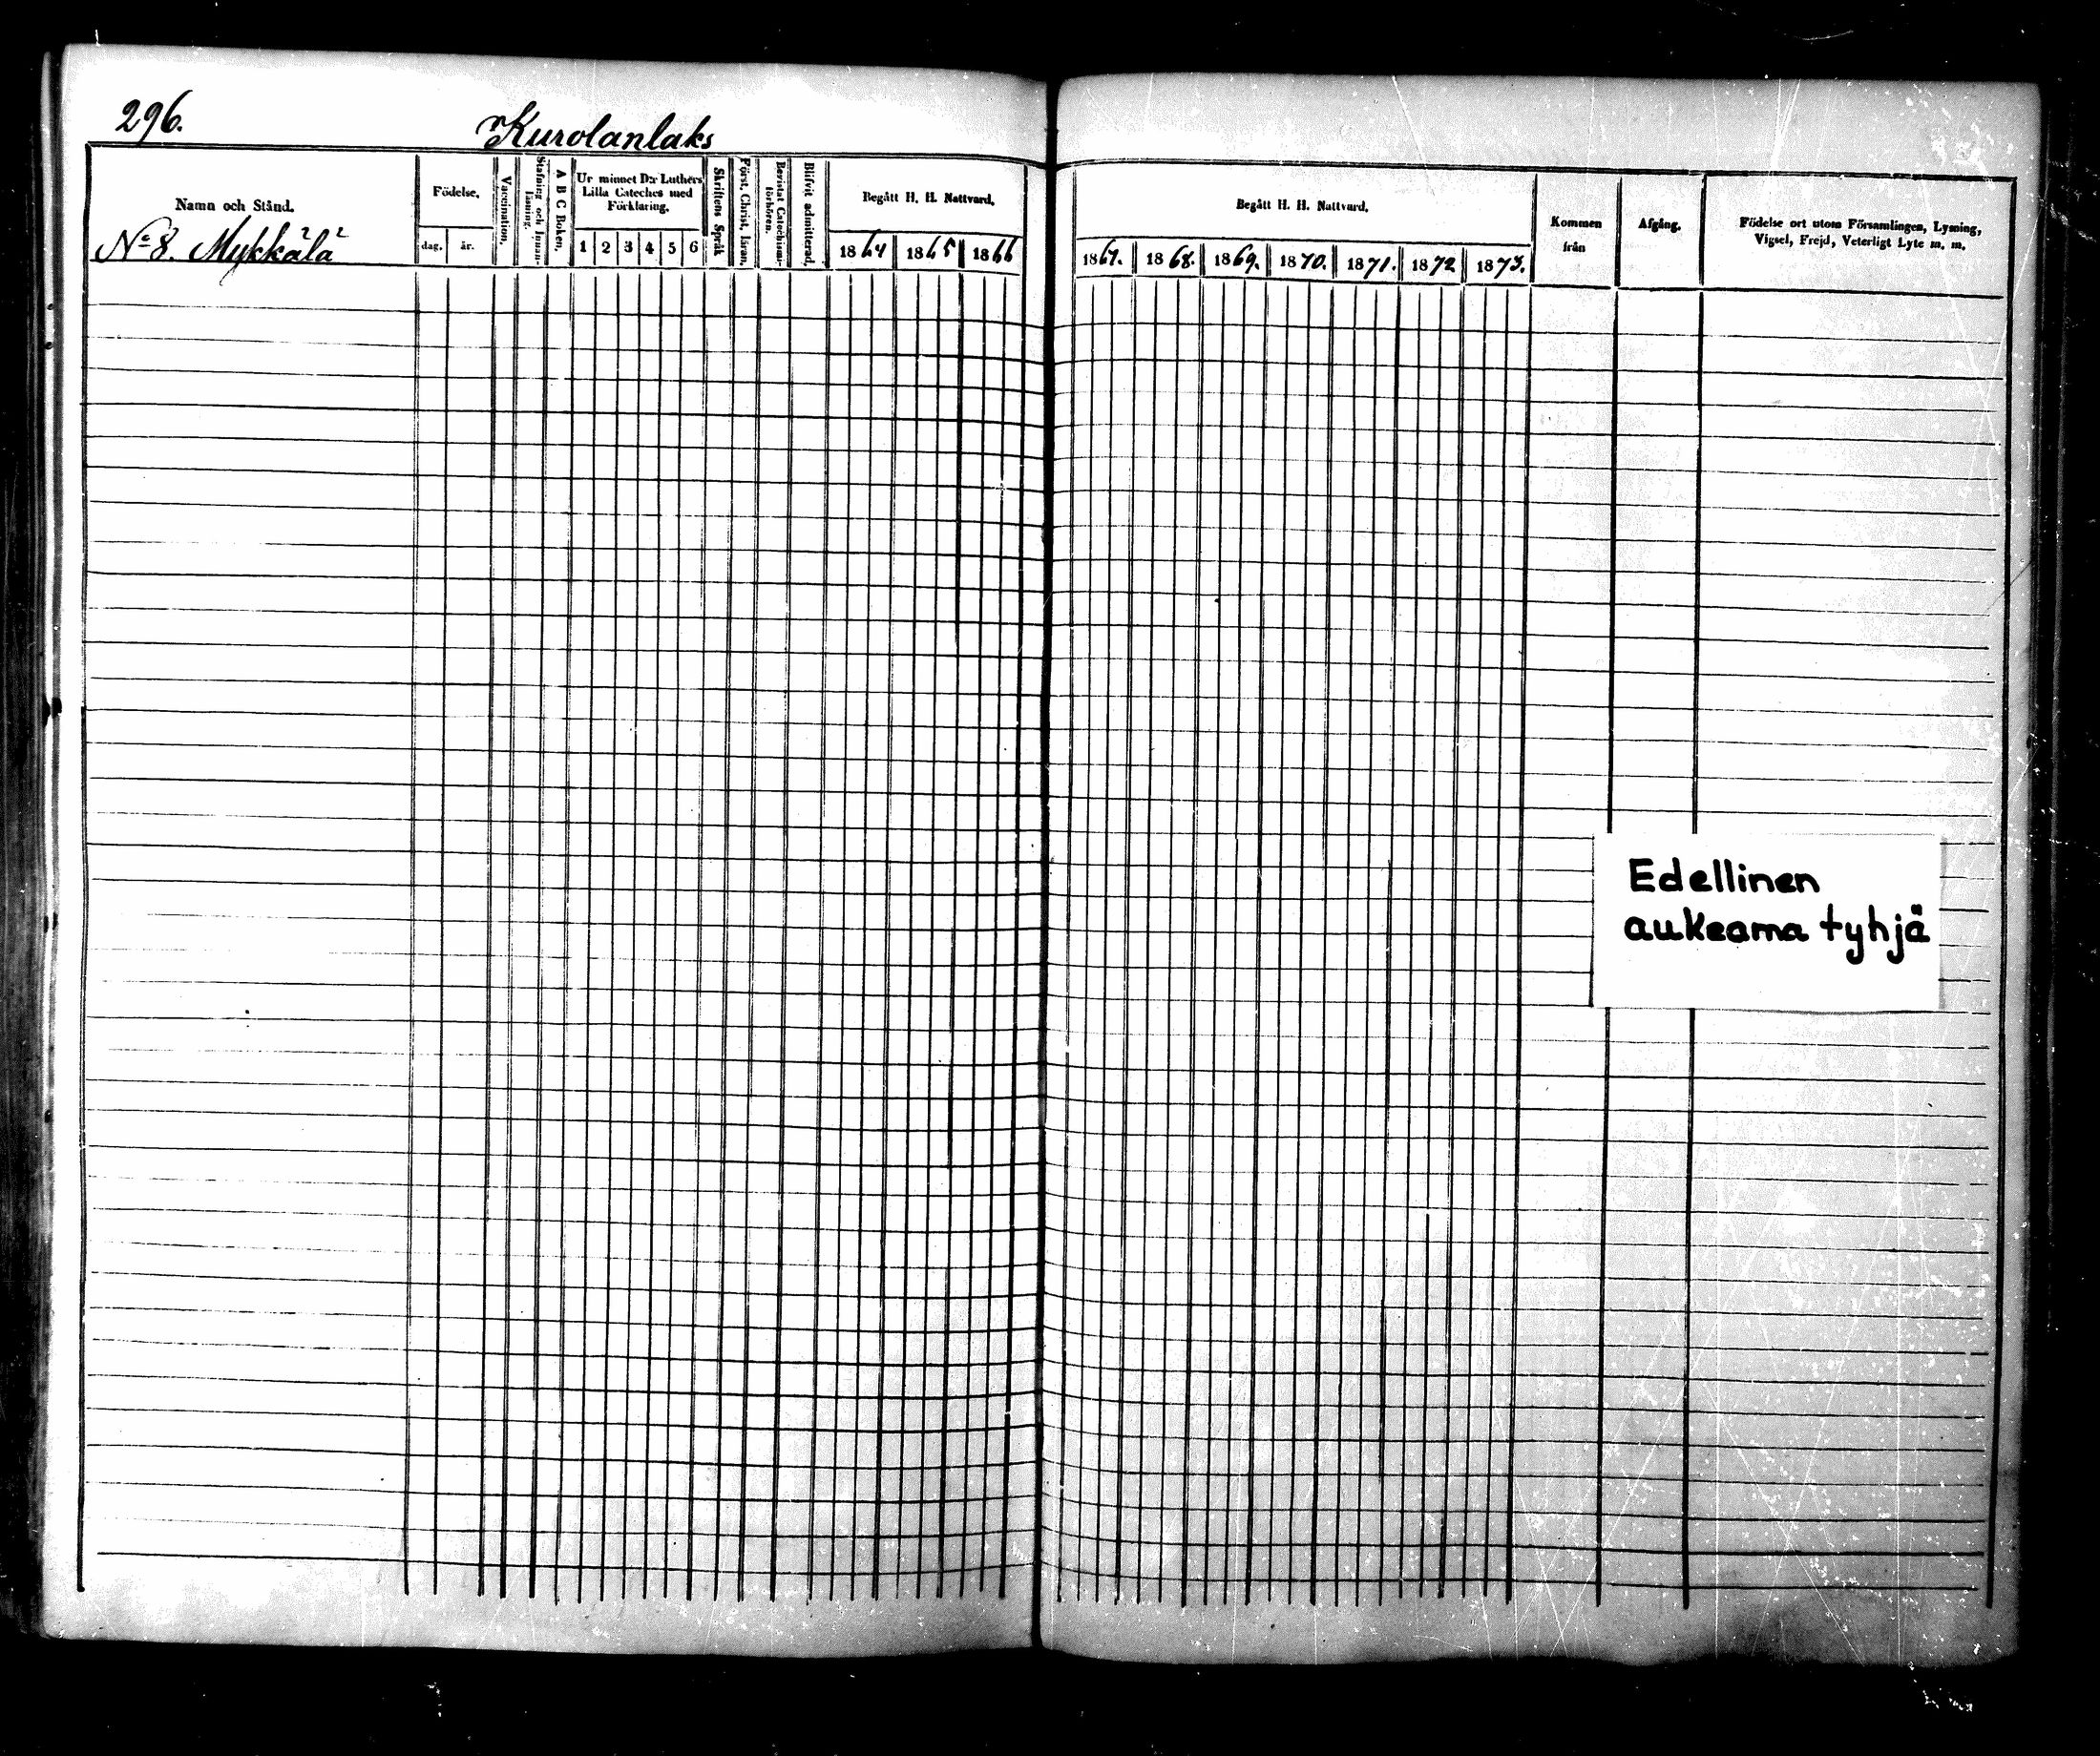 296.
Kurolanlaks
Namn och Stånd.
No 8. Mykkälä
Födelse.
dag. år.
Vaccination.
Stafning och Innan-
läsning.
A B C Boken.
Ur minnet D:r Luthers
Lilla Cateches med
Förklaring.
1 2 3 4 5 6
Skriftens Språk
Först. Christ. läran.
Bevistat Catechismi-
förhören.
Blifvit admitterad.
Begått H. H. Nattvard.
1864 1865 1866
Begått H. H. Nattvard.
1867. 1868. 1869. 1870. 1871. 1872 1873.
Kommen
från
Afgång.
Födelse ort utom Församlingen, Lysning,
Vigsel, Frejd, Veterligt Lyte m. m.
Edellinen
aukeama tyhjä